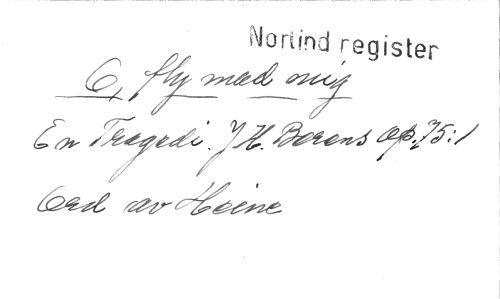 Norlind register
O, fly med mig
En Tragedi. J H. Berens op. 75:1
Ord av Heine